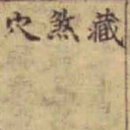 藏煞穴